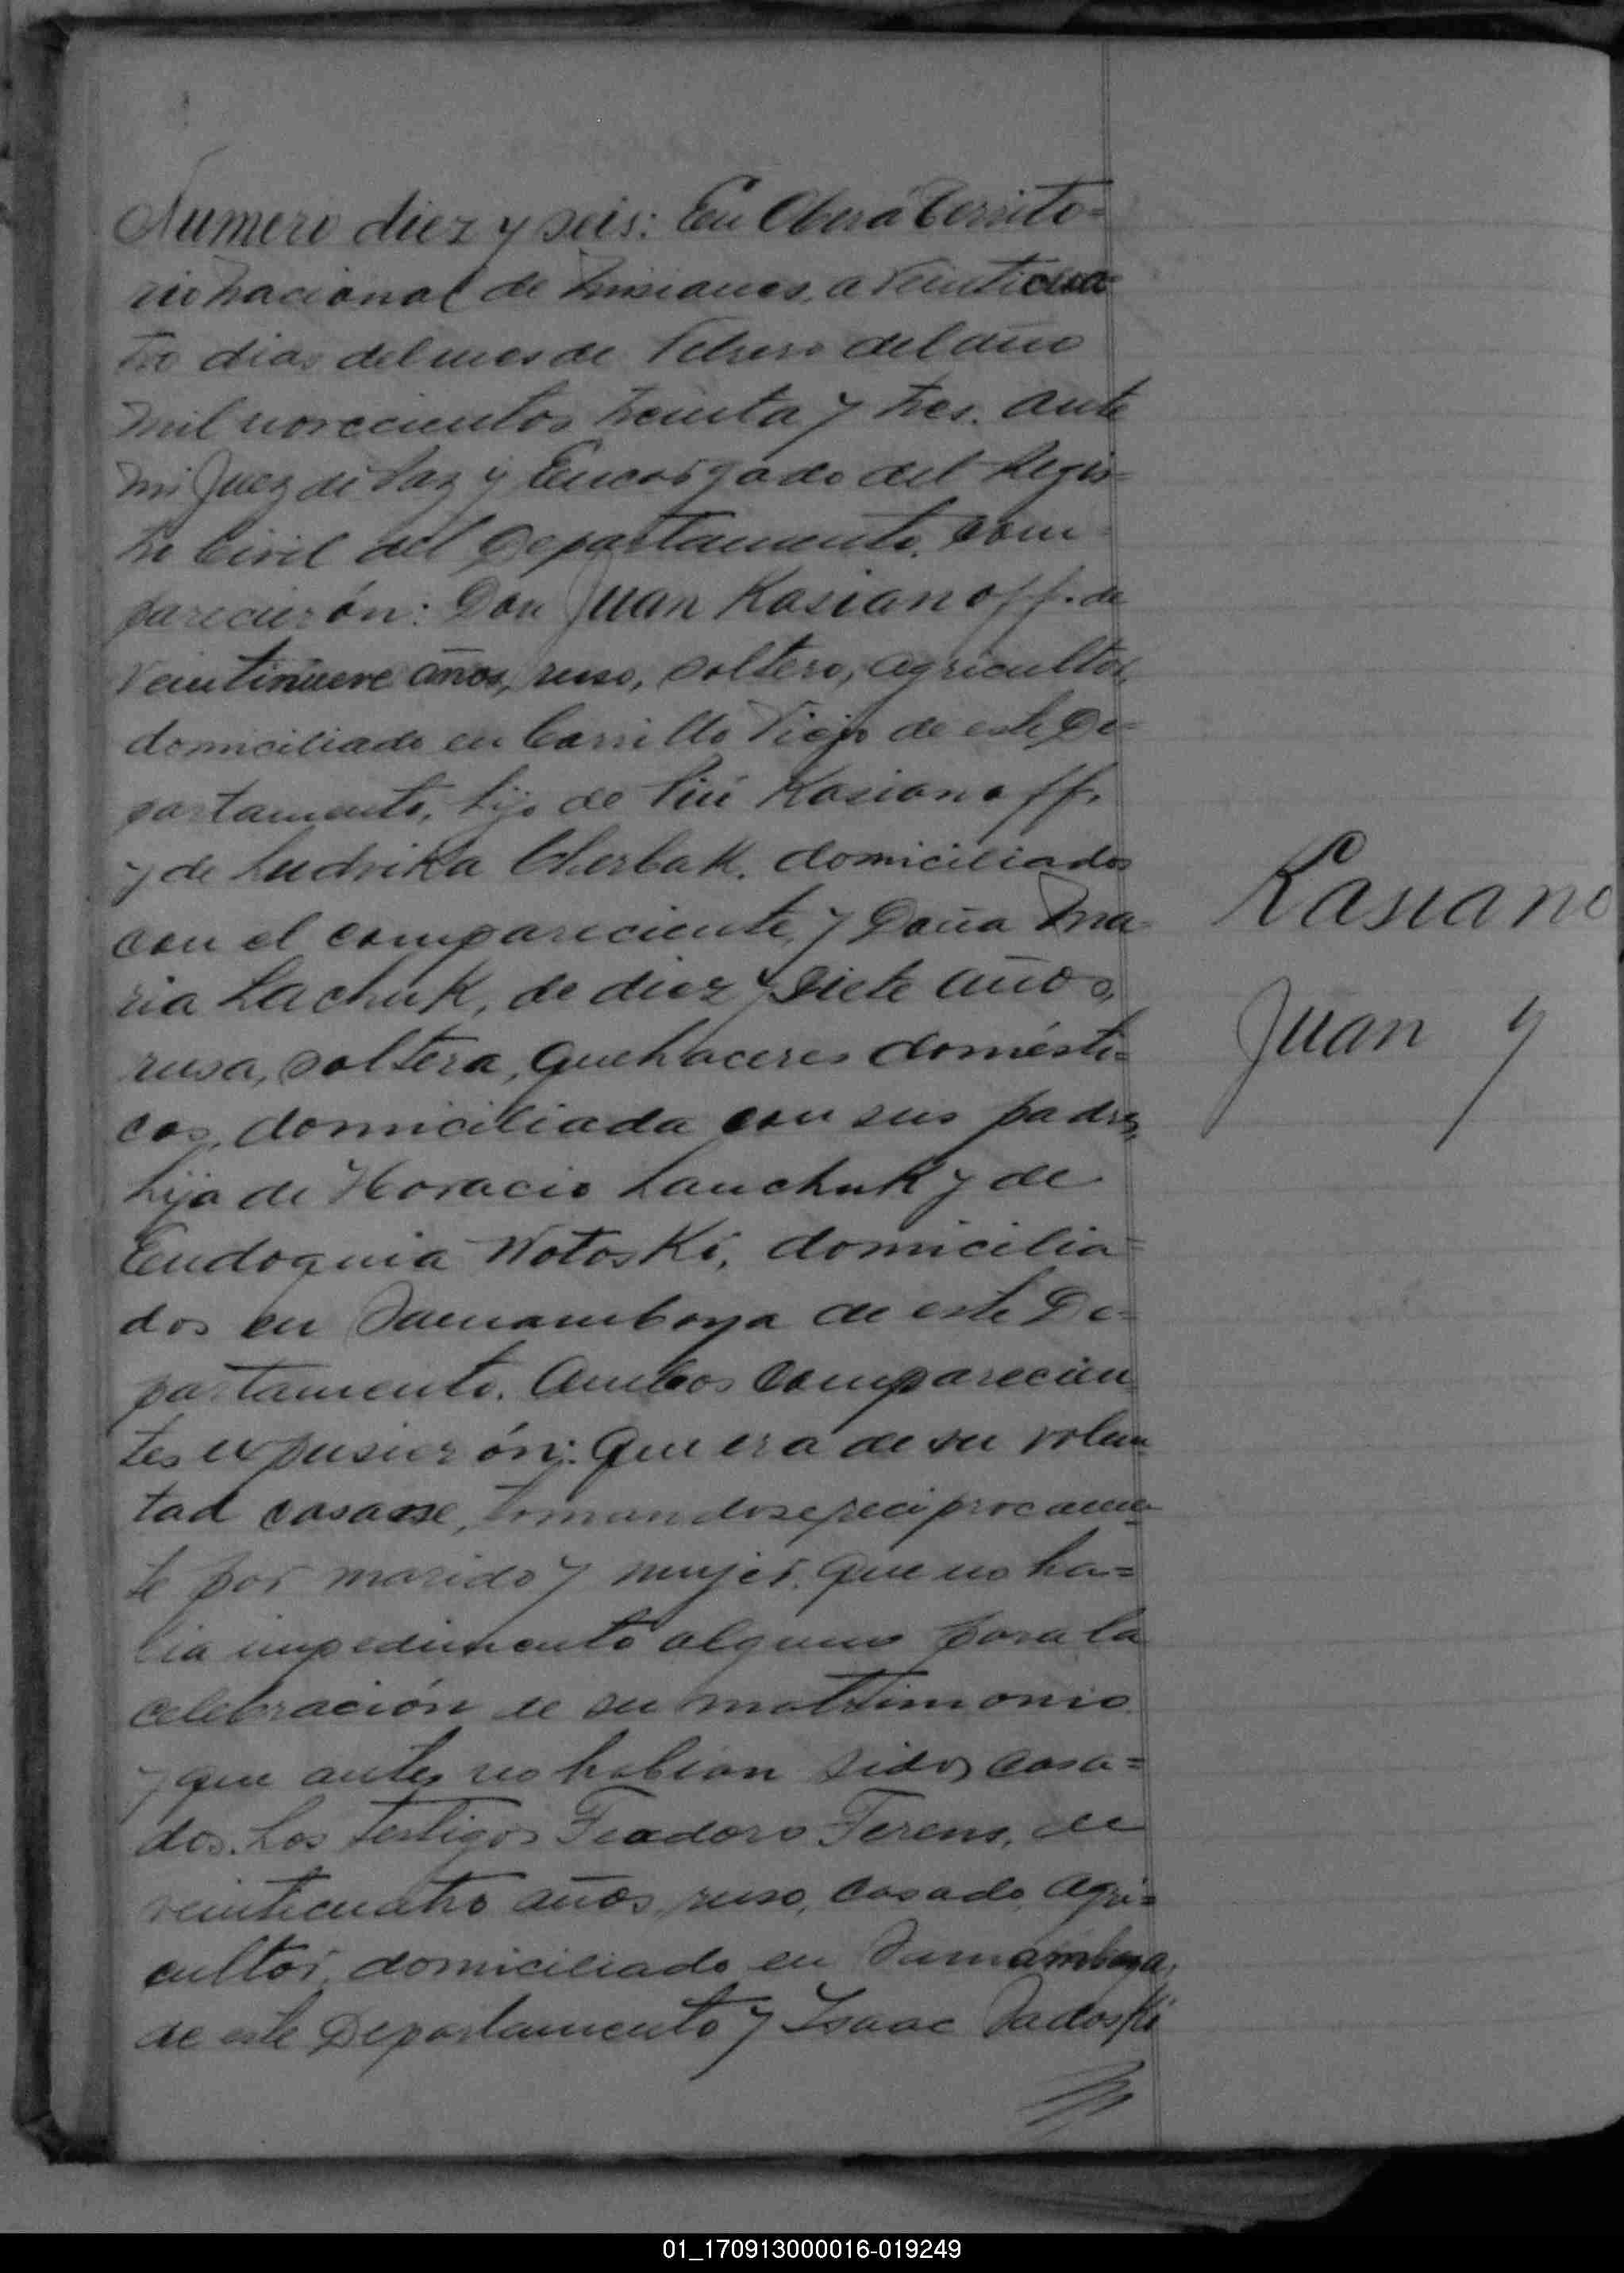 Numero diez y seis: En Oberá Territo=
rio nacional de Misiones, a veinticua=
tro dias del mes de Febrero del año
mil novecientos treinta y tres. ante
mi Juez de Paz y Encargado del Regis=
tro Civil del Departamento, com=
parecierón: Don Juan Kasianoff. de
veintinueve años, ruso, soltero, agricultor,
domiciliado en Carrillo Viejo de este De=
partamento, hijo de Kasianoff.
y de Ludvika Cherbak. domiciliados
con el compareciente, y Doña Ma=
ria Lachuk, de diez y siete años,
rusa, soltera, quehaceres domésti=
cos, domiciliada con sus padres,
hija de Horacio Lauchuk y de
Eudoquia Wotoski, domicilia=
dos en de este De=
partamento. Ambos comparecien
tes expusierón: Que era de su volun
tad casarse, tomandose reciprocamen
te por marido y mujer. Que no ha=
bia impedimento alguno para la
celebración de su matrimonio
y que antes no habian sidos casa=
dos. Los testigos Teodoro Ferens, de
veinticuatro años, ruso, casado, agri=
cultor, domiciliado en
de este Departamento y Isaac Sadoski
Kasiano
Juan y
01_170913000016-019249